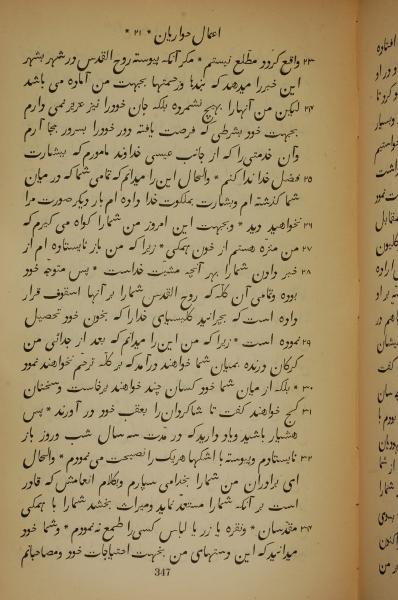 اعمال حواریان * ۲۱ *
۲۳ واقع کردد مطلع نیستم * مکر آنکه پیوسته روح القدس در شهر بشهر
این خبر را میدهد که بندها و زحمتها بجهت من آماده می باشد
۲۴ لیکن من آنها را بهیچ نشمرده بلکه جان خود را نیز عزیز نمی دارم
بجهت خود بشرطی که فرصت یافته دور خود را بسرور بجا آرم
وآن خدمتی را که از جانب عیسی خداوند مامورم که بشارت
۲۵ فضل خدا ندا کنم * والحال این را میدانم که تمامی شما که در میان
شما کذشته ام وبشارت بملکوت خدا داده ام بار دیکر صورت مرا
۲۶ نخواهید دید * وبجهت این امروز من شما را کواه می کیرم که
۲۷ من منزه هستم از خون همکی * زیرا که من باز نایستاده ام از
۲۸ خبر دادن شما را بهر آنچه مشیّت خداست * پس متوجّه خود
بوده وتمامی آن کله که روح القدس شما را بر آنها اسقوف قرار
داده است که بچرانید کلیسیای خدا را که بخون خود تحصیل
۲۹ نموده است * زیرا که من این را میدانم که بعد از جدائی من
کرکان درنده بمیان شما خواهند درآمد که بر کله ترحّم نخواهند نمود
۳۰ * بلکه از میان شما خود کسان چند خواهند برخاست وسخنان
۳۱ کج خواهند کفت تا شاکردان را بعقب خود در آورند * پس
هشیار باشید ویاد دارید که در مدّت سه سال شب وروز باز
۳۲ نایستادم وپیوسته با اشکها هر یک را نصیحت می نمودم * والحال
ای برادران من شما را بخدا می سپارم وبکلام انعامش که قادر
است بر آنکه شما را مستعد نماید ومیراث بخشد شما را با همکی
۳۳ مقدّسان * ونقره یا زر یا لباس کسی را طمع نه نمودم * وشما خود
میدانید که این دستهای من بجهت احتیاجات خود ومصاحبانم
347